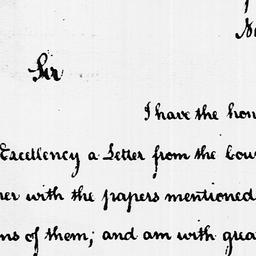 Sir
I have the hon
Excellency a Letter from the Cou
her with the papers mentioned
ns of them; and am with grea